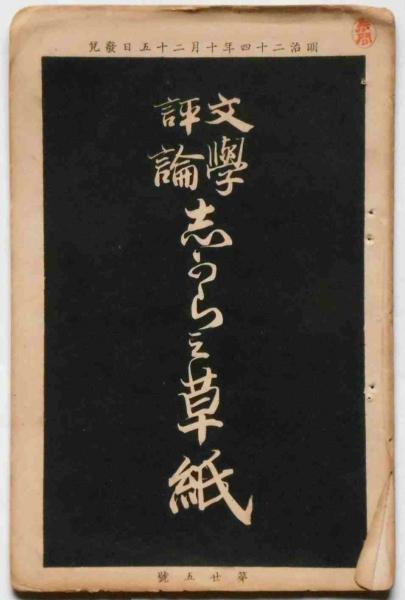 明治二十四年十月二十五日發兌
文學
評論
志からみ草紙
第廿五號